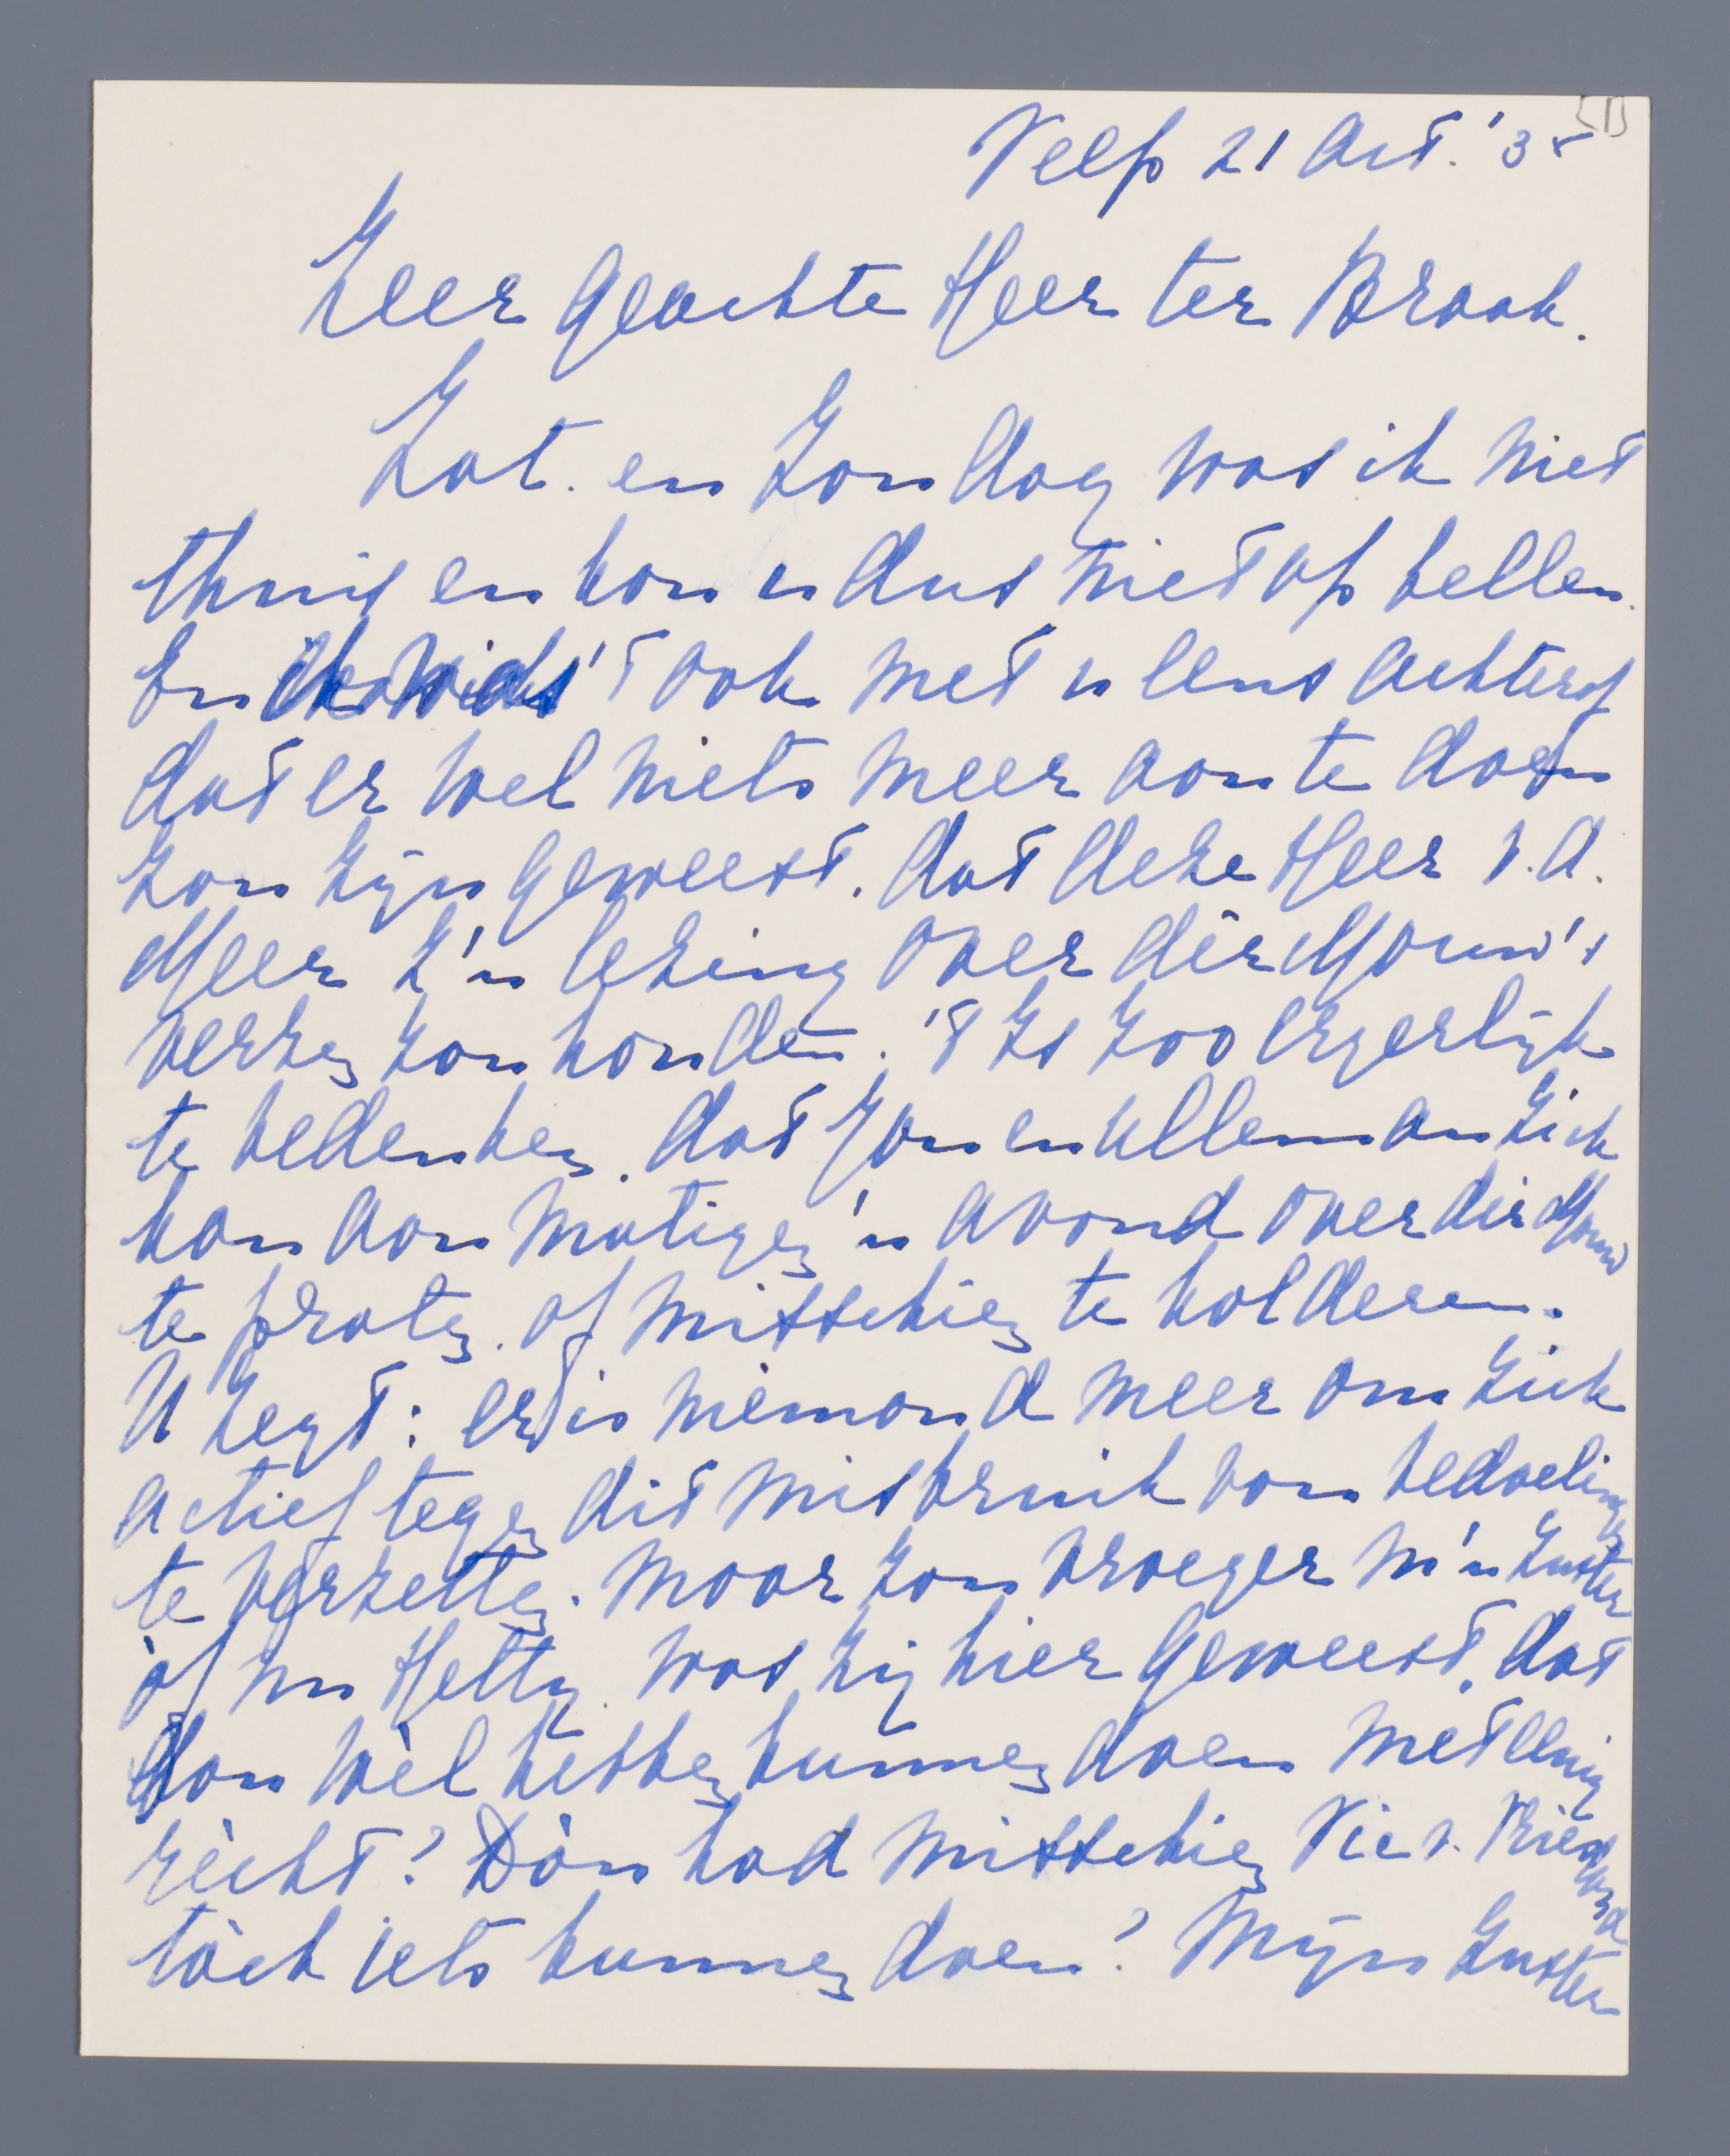 [1]
Velp 21 Oct. '35
Zeer geachte Heer ter Braak.
Zat. en Zondag was ik niet
thuis en kon u dus niet op bellen.
En ik was 't ook met u eens achteraf
dat er wel niets meer aan te doen
zou zijn geweest. dat deze Heer v. d.
Meer z'n lezing over dèr Mouw's
verzen zou houden. 't Is zoo ergerlijk
te bedenken dat Jan en alleman zich
kan aanmatigen 'n avond over dèr Mouw
te praten of misschien te kolderen.
U zegt: er is niemand meer om zich
actief tegen dit misbruik van bedoelingen
te verzetten. Maar zou vroeger m'n Zuster
òf nu Hetty was zij hier geweest, dat
dan wèl hebben kunnen doen met eenig
rècht? Dàn had misschien Vic v. Vriesland
tòch iets kunnen doen? Mijn Zuster